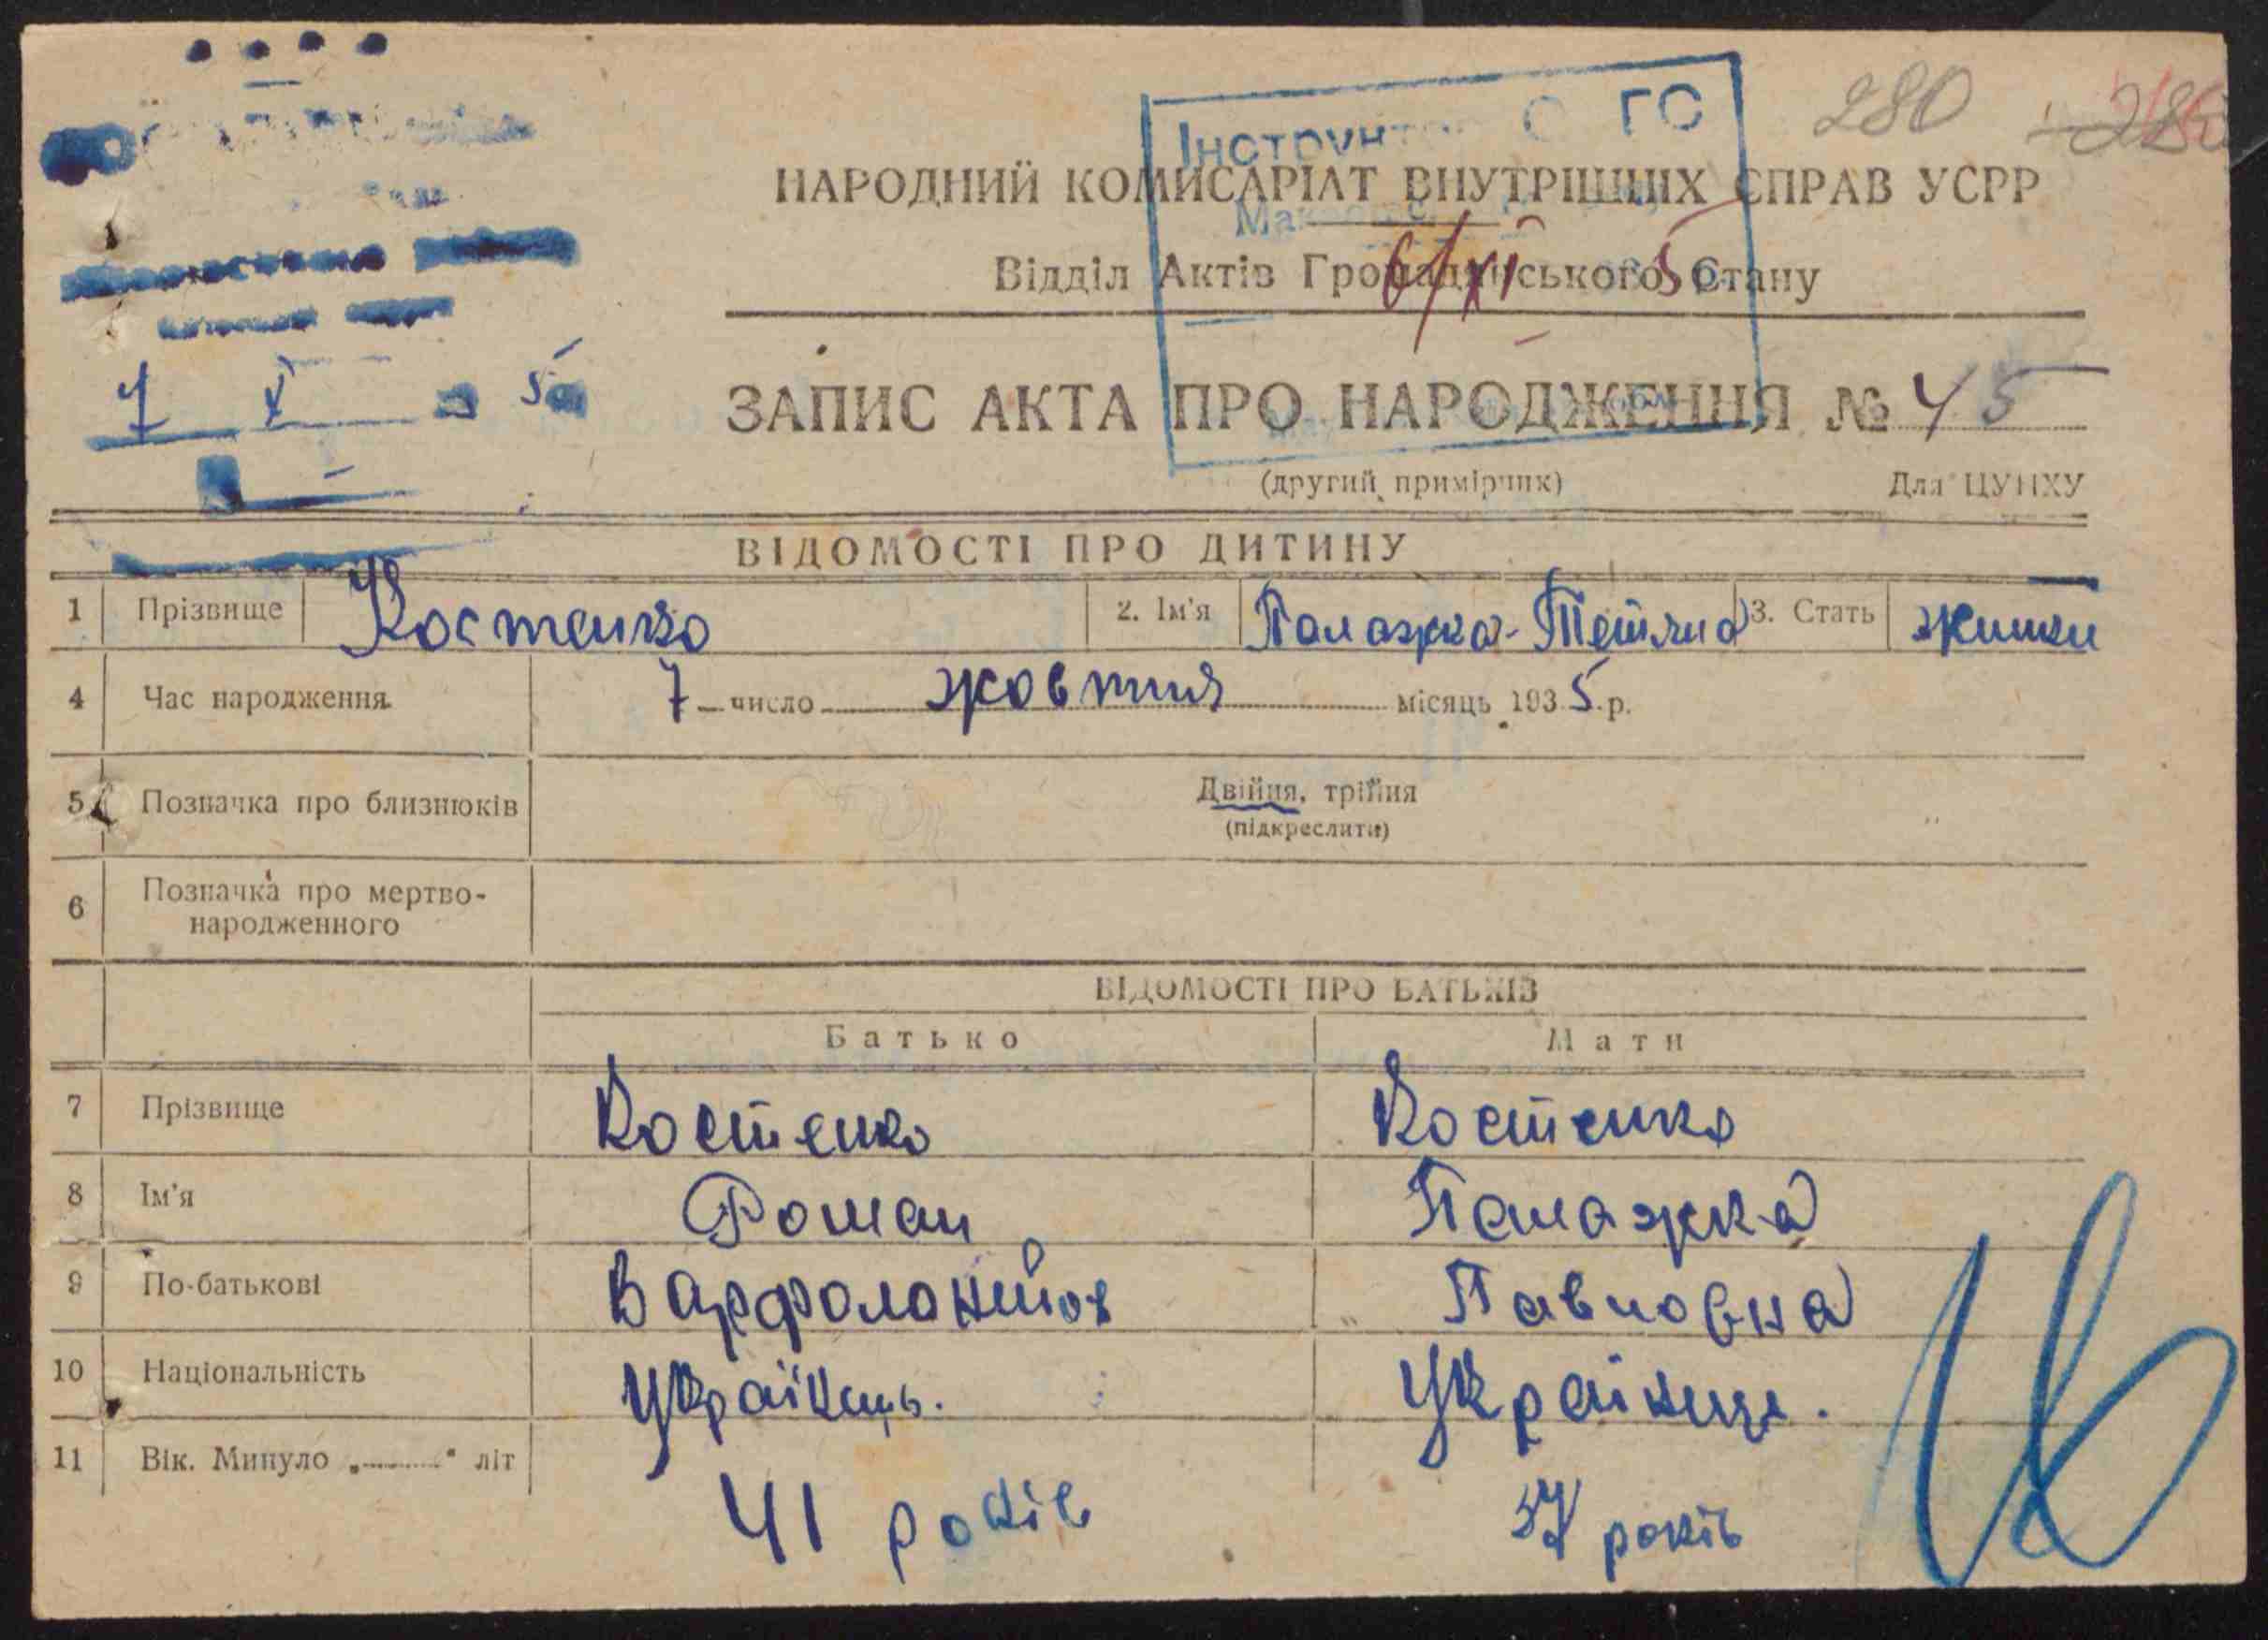 280
Інструкт ГС
НАРОДНИЙ КОМИСАРІАТ ВНУТРІШНІХ СПРАВ УСРР
6/XI 5
Відділ Актів Громадянського Стану
7 X 5
ЗАПИС АКТА ПРО НАРОДЖЕННЯ № 45
(другий примірник) Для ЦУНХУ
ВІДОМОСТІ ПРО ДИТИНУ
1 Прізвище Костенко 2. Ім'я Палажка-Тетяна 3. Стать жіноч
4 Час народження 7 число жовтня місяць 1935 р.
5 Позначка про близнюків Двійня, трійня
(підкреслити)
6 Позначка про мертво-
народженного
ВІДОМОСТІ ПРО БАТЬКІВ
Батько Мати
7 Прізвище Костенко Костенко
8 Ім'я Роман Палажка
9 По-батькові Павловна
10 Національність Українець. Українця.
11 Вік. Минуло „ “ літ 41 років 37 років